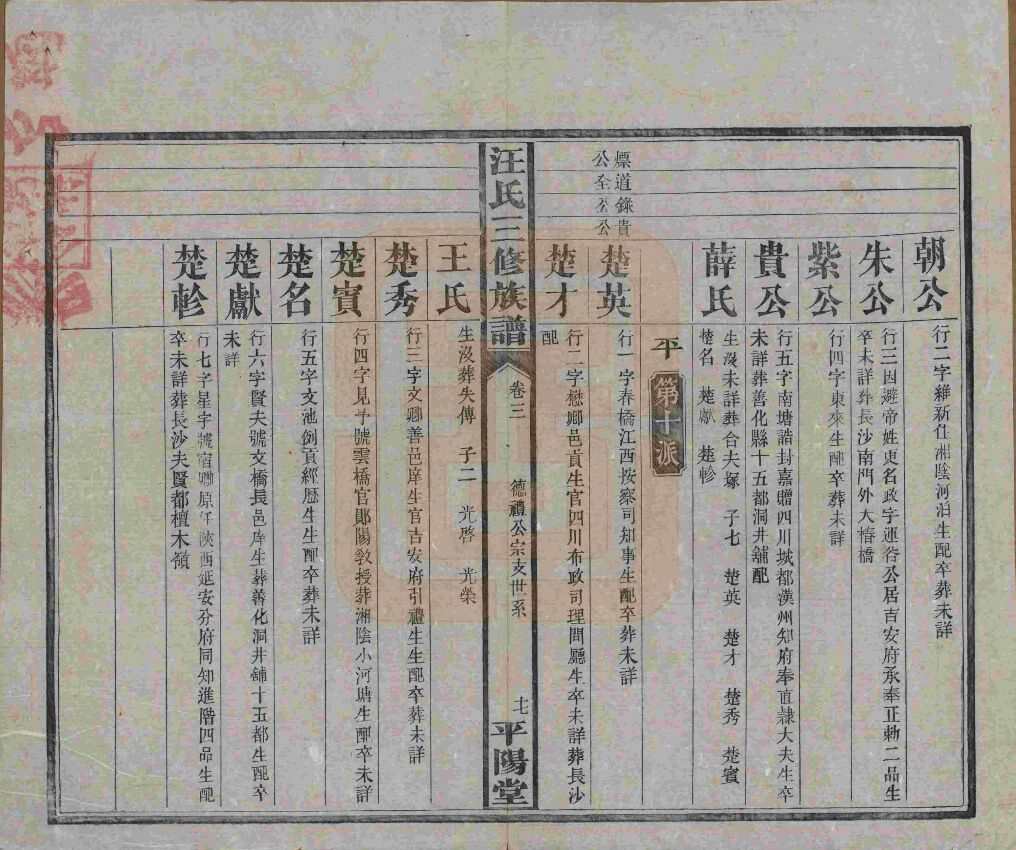 朝公
行二字維新住湘陰河泊生配卒葬未詳
朱公
行三因避帝姓東名政字運谷公居吉安府承奉正勅二品生
卒未詳葬長沙南門外大椿橋
紫公
行四字東來生配卒葬未詳
貴公
行五字南塘誥封嘉贈四川城都漢州知府奉直隷大夫生卒
未詳葬善化縣十五都洞井舖配
薛氏
生沒未詳葬合夫塚 子七 楚英 楚才 楚秀 楚賓
楚名 楚獻 楚軫
平 第十派
標道錄貴
公全公公
楚英
行一字春橋江西按察司知事生配卒葬未詳
楚才
行二字懋卿邑貢生官四川布政司理問廳生卒未詳葬長沙
配
汪氏三修族譜 卷三 德禮公宗支世系 十七 平陽堂
王氏
生沒葬失傳 子二 光啓 光榮
楚秀
行三字文卿善邑庠生官吉安府引禮生生配卒葬未詳
楚賓
行四字見平號雲橋官鄖陽教授葬湘陰小河塘生配卒未詳
楚名
行五字文池例貢經歷生生配卒葬未詳
楚獻
行六字賢夫號文橋長邑庠生葬善化洞井舖十五都生配卒
未詳
楚軫
行七字星字號宿卿原任陝西延安分府同知進階四品生配
卒未詳葬長沙夫賢都檀木嶺